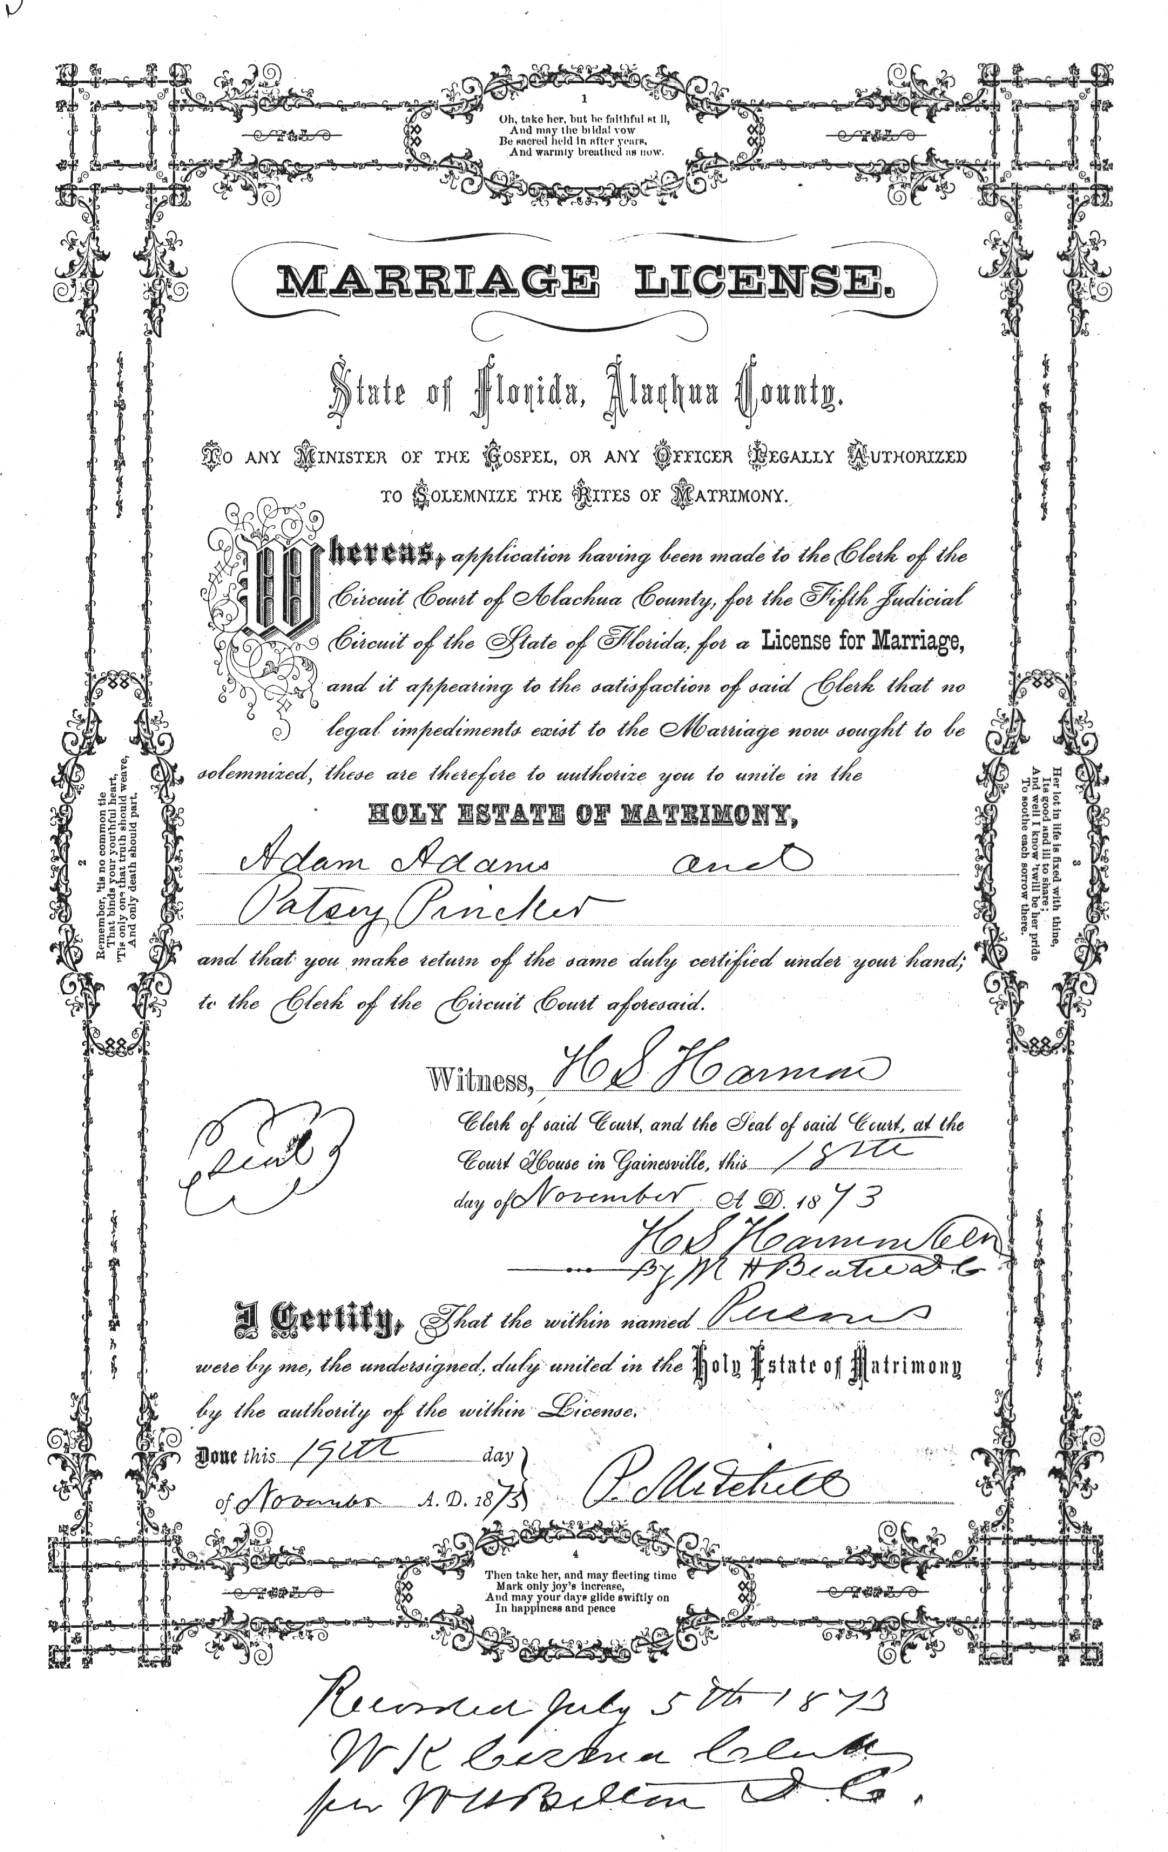 1
Oh, take her, but be faithful st ll,
And may the bridal vow
Be sacred held in after years,
And warmly breathed as now.
MARRIAGE LICENSE.
State of Florida, Alachua County.
To any Minister of the Gospel, or any Officer Legally Authorized
to Solemnize the Rites of Matrimony.
Whereas, application having been made to the Clerk of the
Circuit Court of Alachua County, for the Fifth Judicial
Circuit of the State of Florida, for a License for Marriage,
and it appearing to the satisfaction of said Clerk that no
legal impediments exist to the Marriage now sought to be
solemnized, these are therefore to authorize you to unite in the
HOLY ESTATE OF MATRIMONY,
Adam Adams and
Patsey Pincker
and that you make return of the same duly certified under your hand;
to the Clerk of the Circuit Court aforesaid.
Witness, H S Harmon
Clerk of said Court, and the Seal of said Court, at the
Court House in Gainesville, this 18th
day of November A. D. 1873
Seal
H S Harmon Clk
By M H Beatie D C
I Certify, That the within named Persons
were by me, the undersigned, duly united in the Holy Estate of Matrimony
by the authority of the within License.
Done this 19th day
of November A. D. 1873
P. Mitchell
2
Remember, 'tis no common tie
That binds your youthful heart,
'Tis only one that truth should weave,
And only death should part.
3
Her lot in life is fixed with thine,
Its good and ill to share;
And well I know 'twill be her pride
To soothe each sorrow there.
4
Then take her, and may fleeting time
Mark only joy's increase,
And may your days glide swiftly on
In happiness and peace
Recorded July 5th 1873
W K Clerk
per W H Belton D. C.